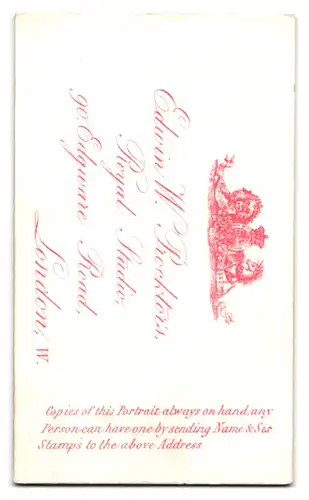 Edwin W. Proctor's,
Royal Studio,
90, Edgware Road,
London, W.
Copies of this Portrait always on hand, any
Person can have one by sending Name & Six
Stamps to the above Address